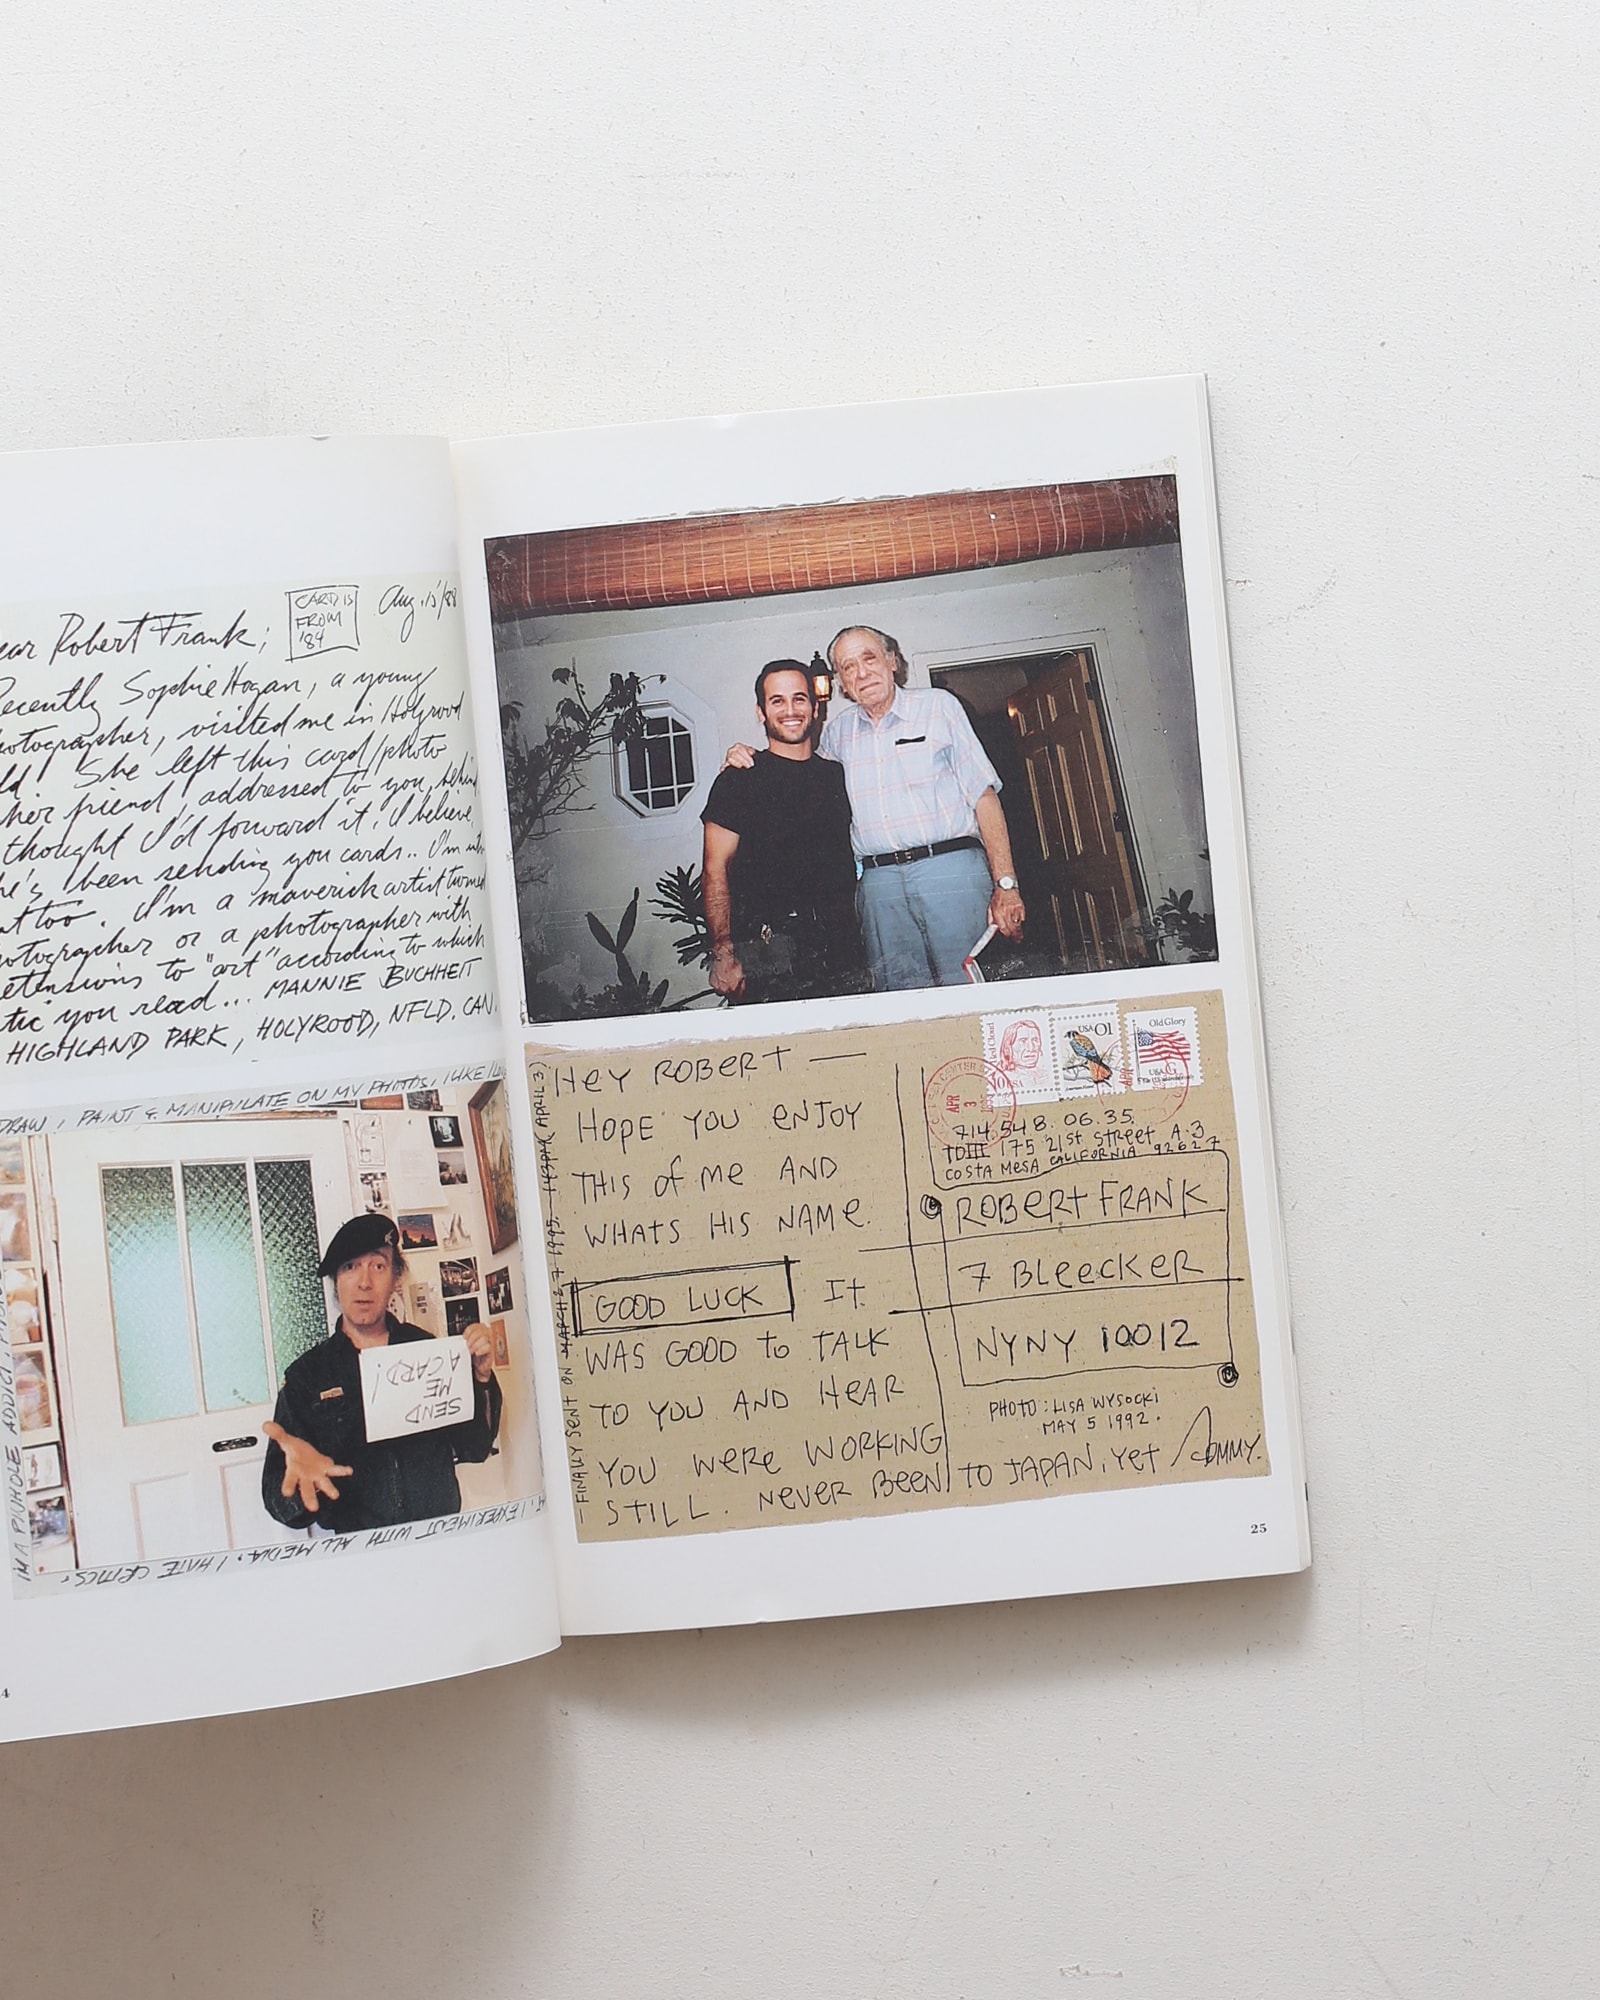 CARD IS
FROM
'84
Aug. 15/88
ear Robert Frank;
Recently Sophie Hogan, a young
hotographer, visited me in Holyrood
ld. She left this card/photo
her friend, addressed to you, behind
thought I'd forward it. I believe,
he's been sending you cards.. I'm into
at too. I'm a maverick artist turned
hotographer or a photographer with
etensions to "art" according to which
tic you read... MANNIE BUCHHEIT
HIGHLAND PARK, HOLYROOD, NFLD. CAN.
DRAW, PAINT & MANIPULATE ON MY PHOTOS, I LIKE
SEND
ME
A CARD!
I'M A PINHOLE ADDICT.
I EXPERIMENT WITH ALL MEDIA. I HATE CRITICS.
4
HEY ROBERT —
HOPE YOU ENJOY
THIS of ME AND
WHATS HIS NAME.
GOOD LUCK It
WAS GOOD to TALK
TO YOU AND HEAR
YOU WERE WORKING
STILL. NEVER BEEN TO JAPAN, YET TOMMY.
— FINALLY SENT ON MARCH 27 1995. 143PM (APRIL 3)
Red Cloud
10 USA
USA 01
American Kestrel
Old Glory
USA G
APR
3
1995
714.548.06.35.
175 21st STREET A.3
COSTA MESA CALIFORNIA 92627
ROBERT FRANK
7 BLEECKER
NYNY 10012
PHOTO: LISA WYSOCKI
MAY 5 1992.
25